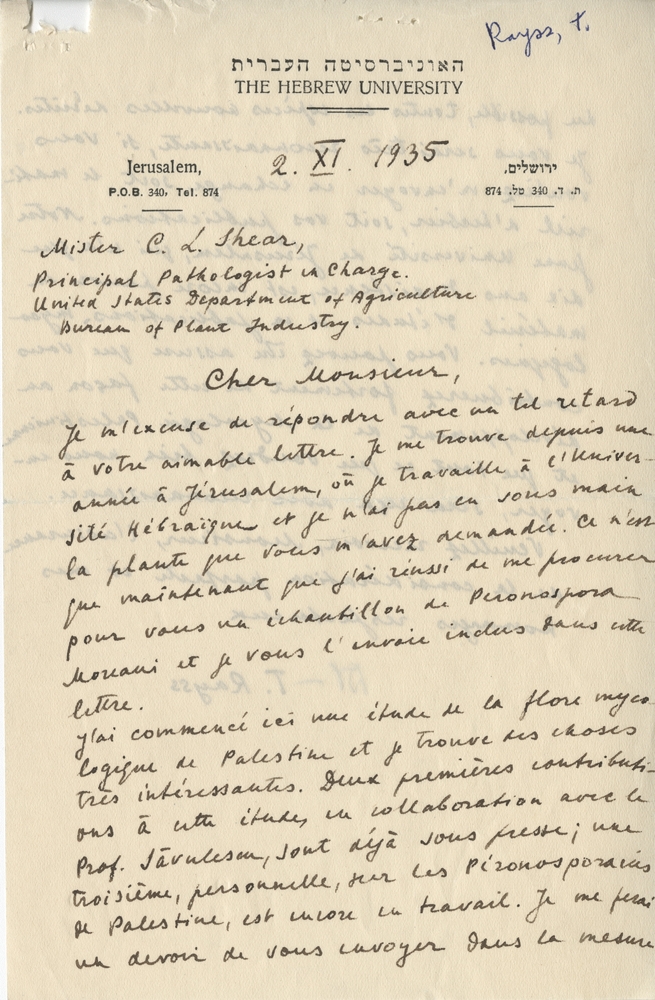 Rayss, T.
האוניברסיטה העברית
THE HEBREW UNIVERSITY
Jerusalem,
P.O.B. 340, Tel. 874
2. XI. 1935
ירושלים,
ת. ד. 340 טל. 874
Mister C. L. Shear,
Principal Pathologist in Charge.
United States Department of Agriculture
Bureau of Plant Industry.
Cher Monsieur,
Je m'excuse de répondre avec un tel retard
à votre aimable lettre. Je me trouve depuis une
année à Jérusalem, où je travaille à l'Univer-
sité Hébraïque et je n'ai pas eu sous main
la plante que vous m'avez demandée. Ce n'est
que maintenant que j'ai réussi de me procurer
pour vous un échantillon de Peronospora
Moreaui et je vous l'envoie inclus dans cette
lettre.
J'ai commencé ici une étude de la flore myco-
logique de Palestine et je trouve des choses
très intéressantes. Deux premières contributi-
ons à cette étude, en collaboration avec le
Prof. Săvulescu, sont déjà sous presse; une
troisième, personnelle, sur les Péronosporacées
de Palestine, est encore en travail. Je me ferai
un devoir de vous envoyer dans la mesure